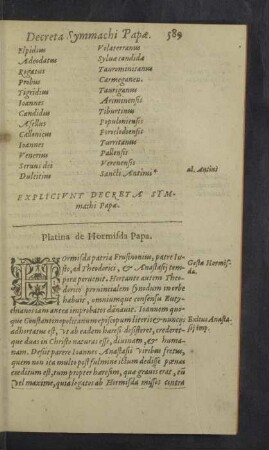 Decreta Symmachi Papæ. 589
Elpidius Volaterranus
Adeodatus Syluæ candidæ
Rogatus Taurominitanus
Probus Carmeganen.
Tigridius Taurignus
Ioannes Ariminensis
Candidus Tiburtinus
Asellus Populoniensis
Callonicus Foroclodiensis
Ioannes Turritanus
Venerius Pallensis
Seruus dei Verenensis
Dulcitius Sancti Antimi* al. Antini
EXPLICIVNT DECRETA SYM-
machi Papæ.
Platina de Hormisda Papa.
HOrmisda patria Frusinonius, patre Iu-
sto, ad Theodorici, & Anastasij tem-
pora peruenit. Hortante autem Theo-
dorico prouincialem synodum in vrbe
habuit, omniumque consensu Euty-
chianorum antea improbatos damnauit. Ioannem quo-
que Constantinopolitanum episcopum literis & nuncijs
adhortatus est, vt ab eadem hæresi desisteret, crederet-
que duas in Christo naturas esse, diuinam, & huma-
nam. Desijt parere Ioannes Anastasii viribus fretus,
quem non ita multo post fulmine ictum dedisse pœnas
creditum est, tum propter hæresim, qua grauis erat, tū
vel maxime, quia legatos ab Hormisda missos contra
Gesta Hormis-
dæ.
Exitus Anasta-
sij imp.